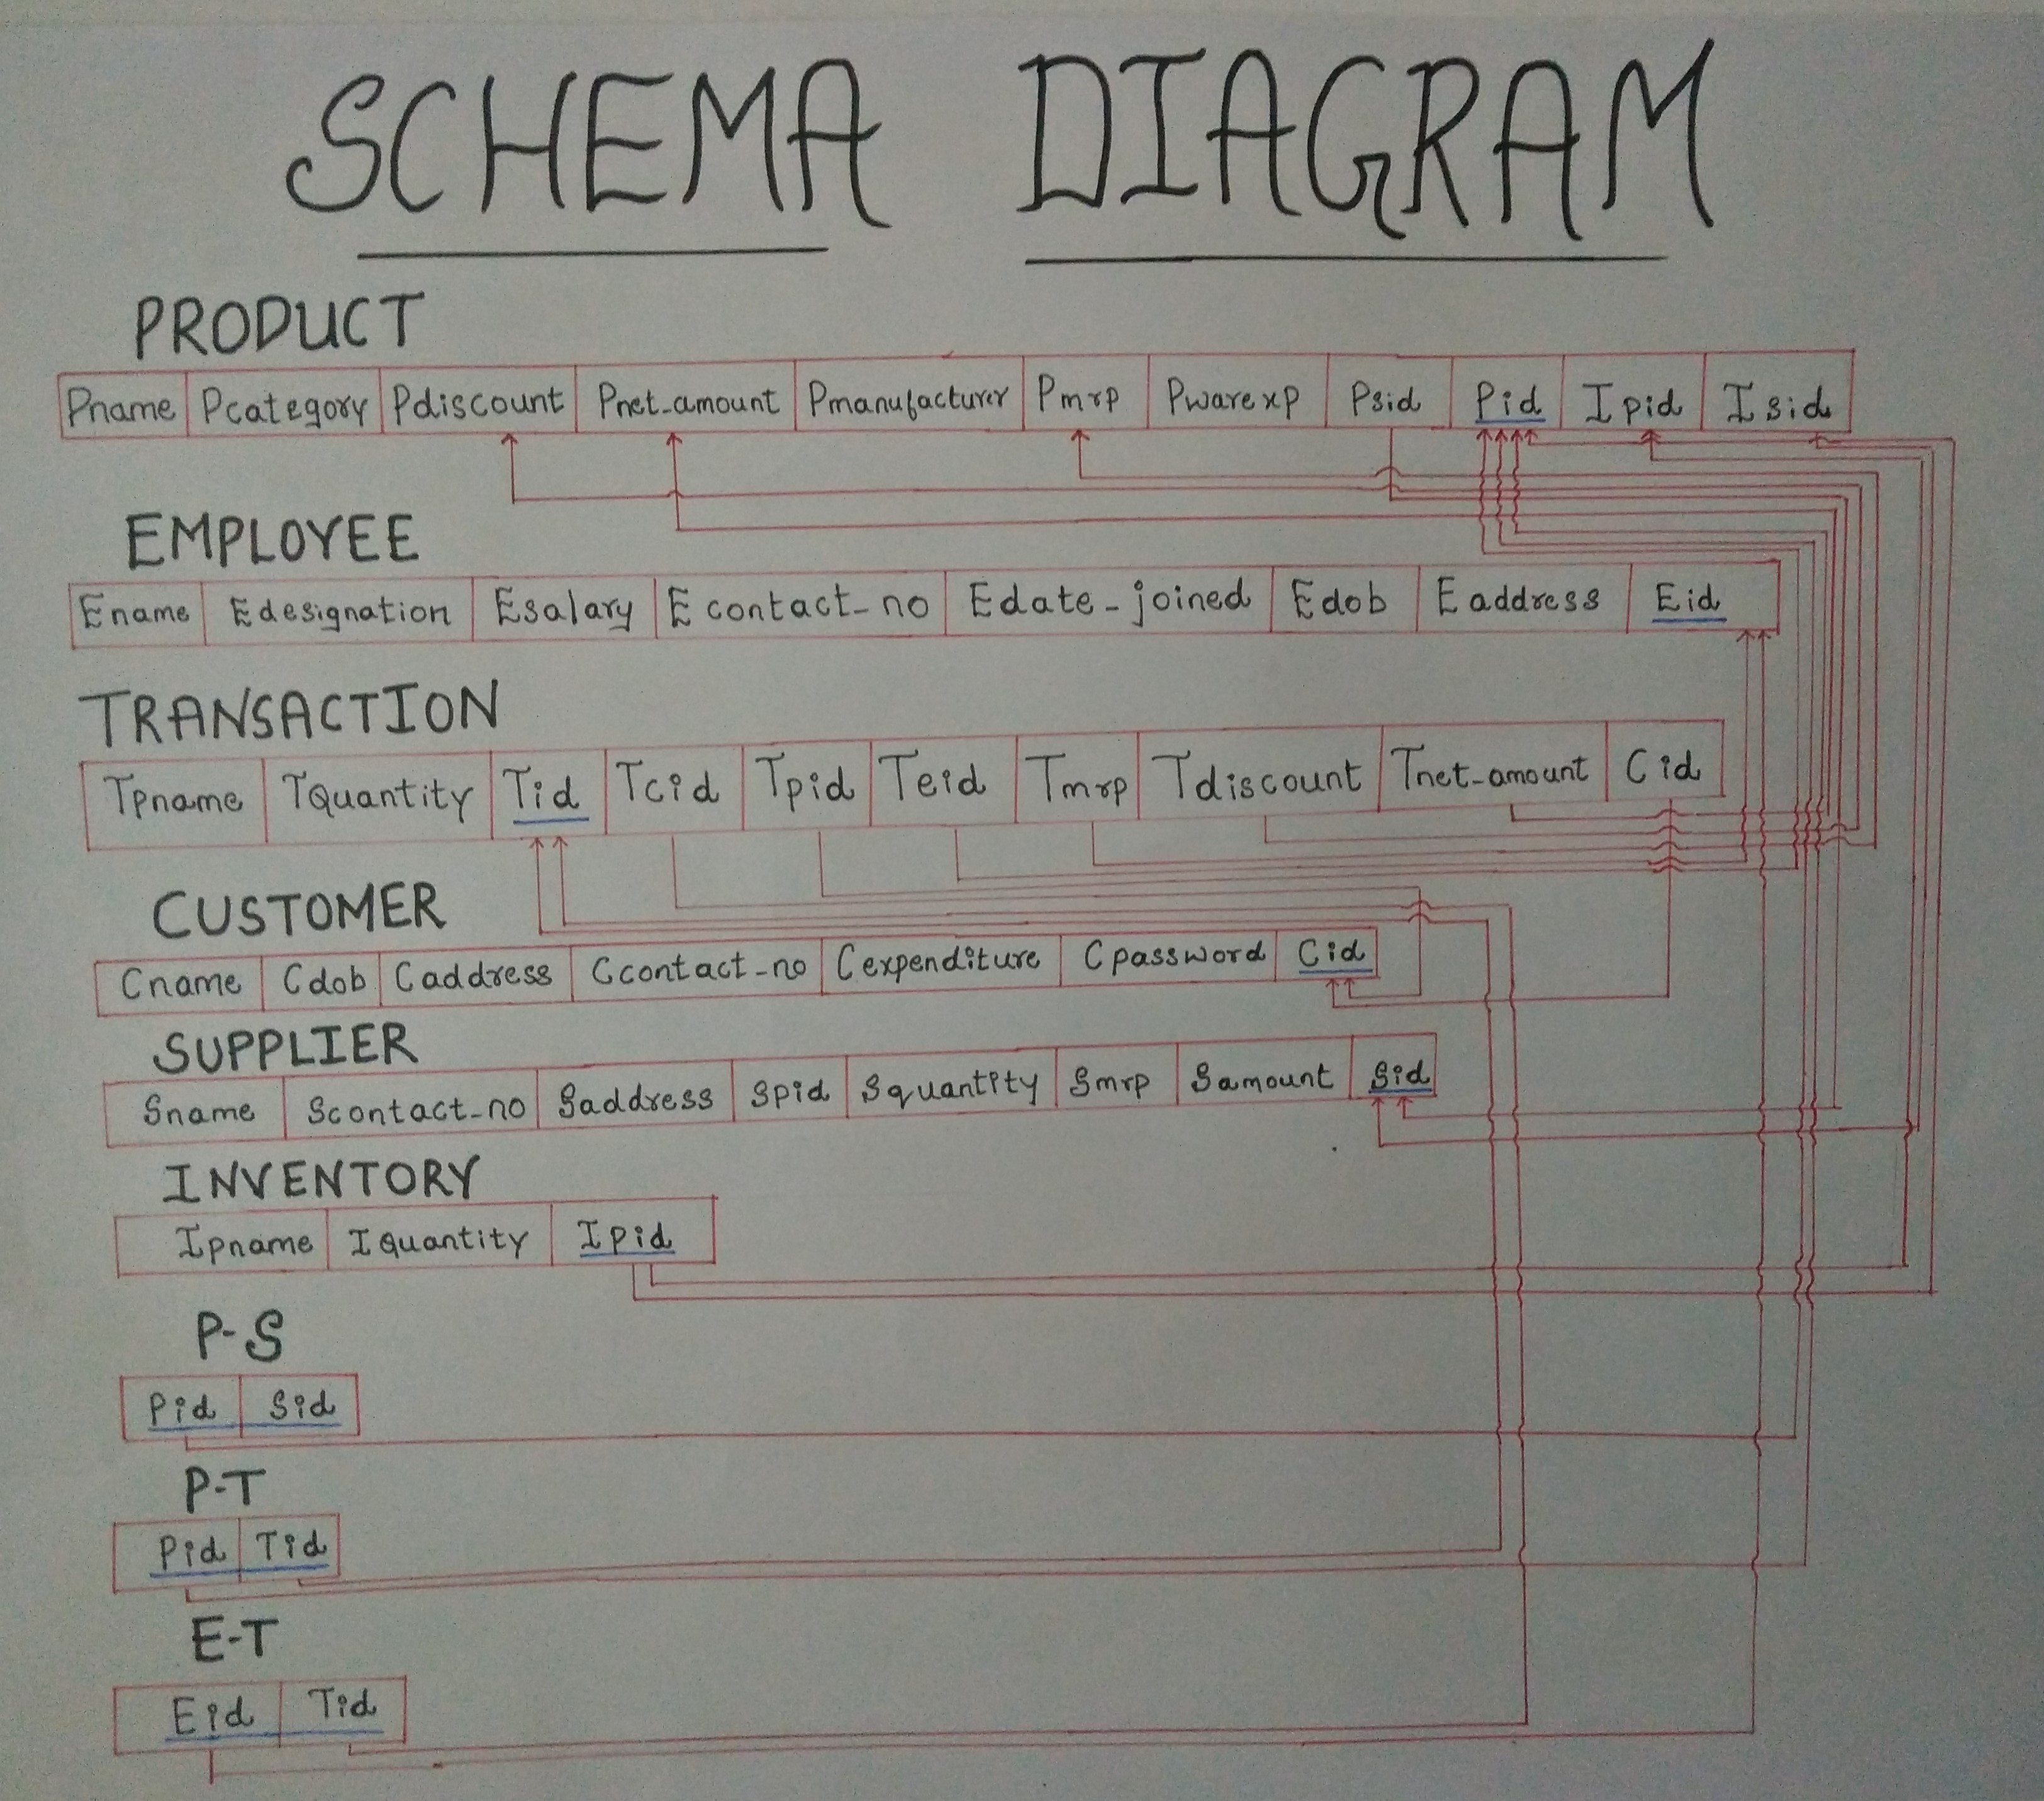 SCHEMA DIAGRAM
PRODUCT
Pname Pcategory Pdiscount Pnet_amount Pmanufacturer Pmrp Pwarexp Psid Pid Ipid Isid
EMPLOYEE
Ename Edesignation Esalary Econtact_no Edate_joined Edob Eaddress Eid
TRANSACTION
Tpname TQuantity Tid Tcid Tpid Teid Tmrp Tdiscount Tnet_amount Cid
CUSTOMER
Cname Cdob Caddress Ccontact_no Cexpenditure Cpassword Cid
SUPPLIER
Sname Scontact_no Saddress Spid Squantity Smrp Samount Sid
INVENTORY
Ipname IQuantity Ipid
P-S
Pid Sid
P-T
Pid Tid
E-T
Eid Tid